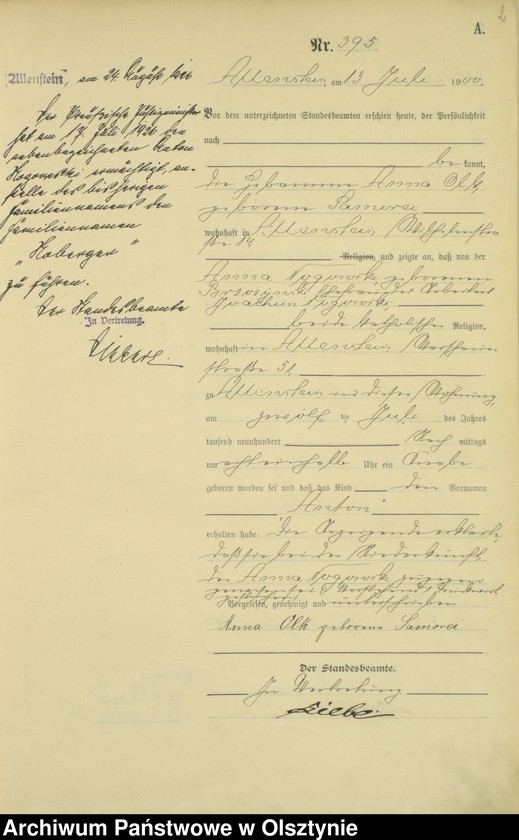 2
A.
Nr. 395.
Allenstein, am 13. Juli 1900.
Vor dem unterzeichneten Standesbeamten erschien heute, der Persönlichkeit
nach
bekannt,
die Hebamme Anna Olk,
geborene
wohnhaft in Allenstein, Wilhelmstra-
ße 14,
Religion, und zeigte an, daß von der
Anna geborenen
Ehefrau des Arbeiters
Joachim
beide katholischer Religion,
wohnhaft in Allenstein,
straße 51,
zu Allenstein in dieser Wohnung,
am zwölften Juli des Jahres
tausend neunhundert Nachmittags
um achteinhalb Uhr ein Knabe
geboren worden sei und daß das Kind den Vornamen
Anton
erhalten habe. Die Anzeigende erklärte,
daß sie bei der Niederkunft
der Anna zugegen
gewesen sei.
Vorgelesen, genehmigt und unterschrieben
Anna Olk geborene
Der Standesbeamte.
In Vertretung
Allenstein, am 24. 1926
Der Preußische Justizminister
hat am 17. Juli 1926 den
nebenbezeichneten Anton
ermächtigt, an-
stelle des bisherigen
Familiennamens den
Familiennamen
"Roberger"
zu führen.
Der Standesbeamte
In Vertretung.
Archiwum Państwowe w Olsztynie